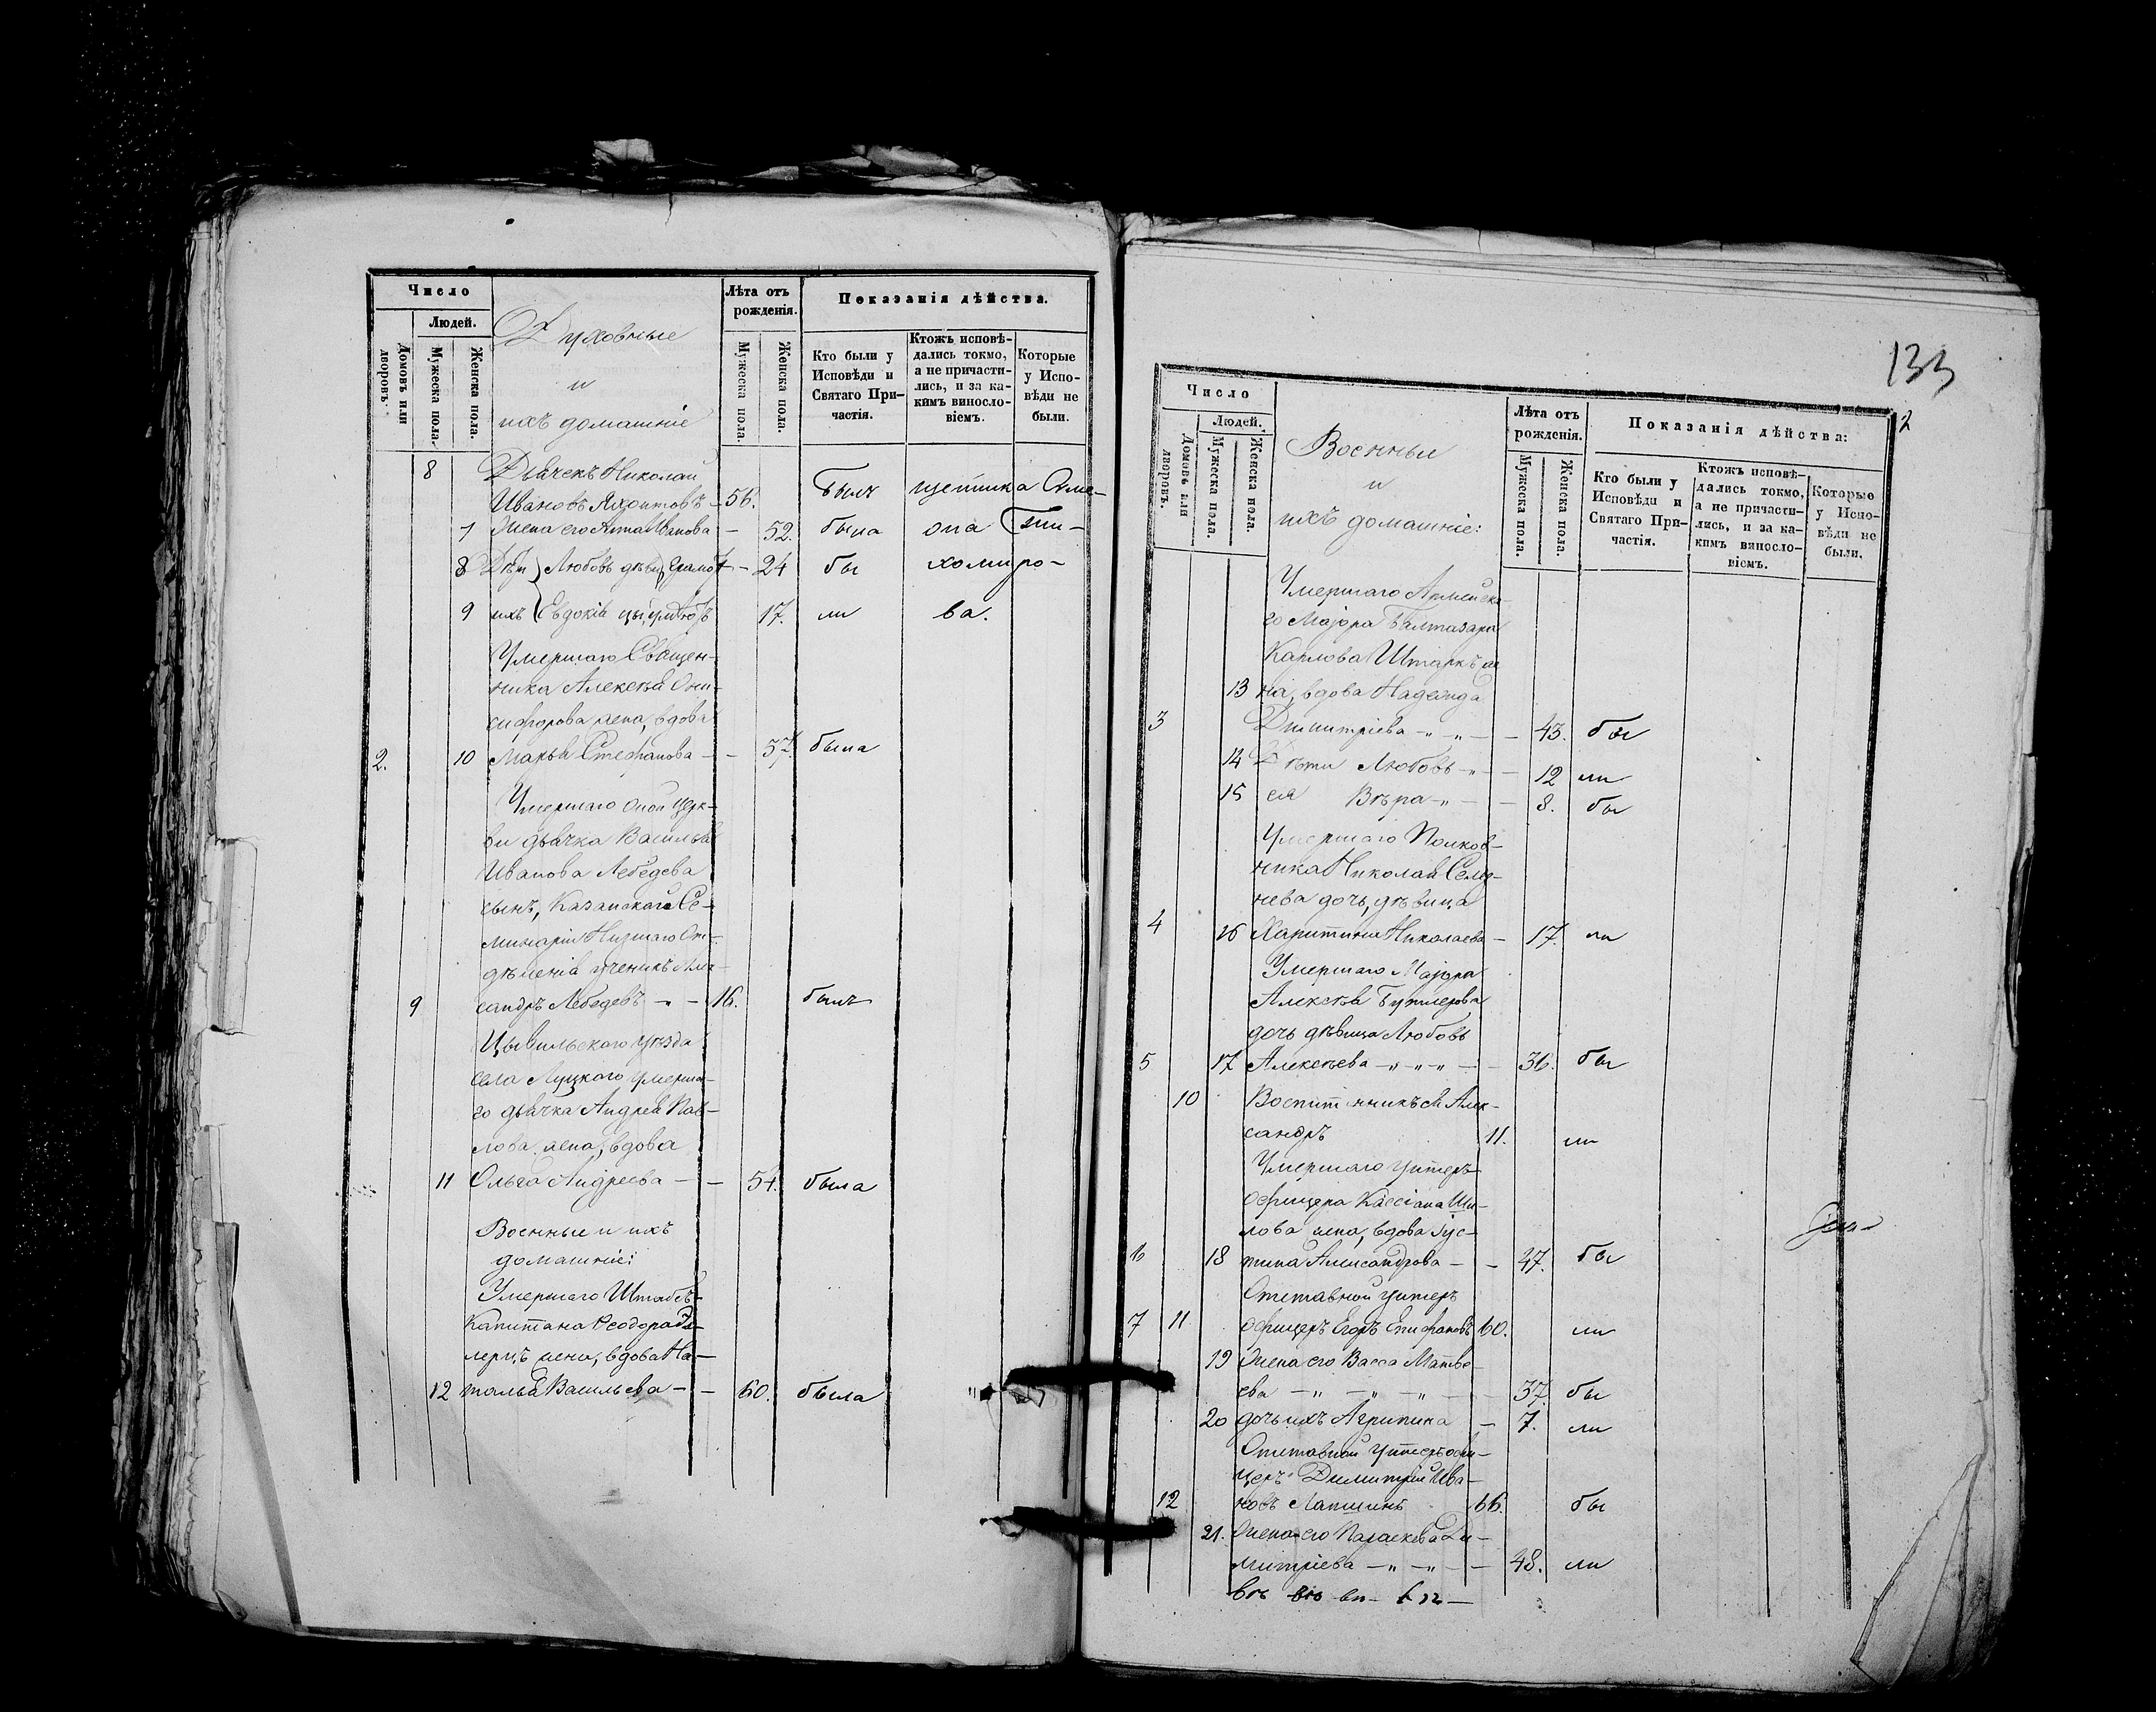 Число
Людей.
Домовъ или дворовъ.
Мужеска пола.
Женска пола.
Духовные
и
ихъ домашніе
Лѣта отъ рожденія.
Мужеска пола.
Женска пола.
Показанія дѣйства.
Кто были у Исповѣди и Святаго Причастія.
Ктожъ исповѣдались токмо, а не причастились, и за какимъ винословіемъ.
Которые у Исповѣди не были.
8 Дьячекъ Николай
Ивановъ Яхонтовъ – 56. былъ
7 Жена его Анна Иванова – 52. была
8 Дѣти Любовь дѣви – 24 бы
9 ихъ Евдокія 17. ли
Умершаго Священ-
ника Алексѣя Они-
сифорова жена, вдова
2. 10 Марья Стефанова – – 57. была
Умершаго оной Церк-
ви дьячка Василья
Иванова Лебедева
сынъ, Казанской Се-
минаріи Низшаго От-
дѣленія ученикъ Алек-
9 сандръ Лебедевъ – „ – 16. былъ
Цывильскаго уѣзда
села Луцкаго умерша-
го дьячка Андрея Пав-
лова жена, вдова
11 Ольга Андреева – – 54. была
Военные и ихъ
домашніе:
Умершаго Штабсъ-
Капитана Ѳеодора
жена, вдова На-
12 талья Васильева – – 60. была
133
2
Число
Людей.
Домовъ или дворовъ.
Мужеска пола.
Женска пола.
Военные
и
ихъ домашніе:
Лѣта отъ рожденія.
Мужеска пола.
Женска пола.
Показанія дѣйства:
Кто были у Исповѣди и Святаго Причастія.
Ктожъ исповѣдались токмо, а не причастились, и за какимъ винословіемъ.
Которые у Исповѣди не были.
Умершаго Армейска-
го Маіора Балтазара
Карлова Штаркъ же
13 на, вдова Надежда
3 Димитріева – „ – „ – – 43. бы
14 Дѣти Любовь – „ – – 12 ли
15 ея Вѣра – „ – – 8. бы
Умершаго Полков-
ника Николая
нева дочь, дѣвица
4 16 Харитина Николаева – 17. ли
Умершаго Маіора
Алексѣя Бутлерова
дочь дѣвица Любовь
5 17 Алексѣева – „ – „ – „ – – 36. бы
10 Воспитанникъ ея Алек-
сандръ 11. ли
Умершаго унтеръ-
офицера Кассіана Ши-
лова жена, вдова Іус-
6 18 тина Александрова – – 47. бы
Отставной унтеръ
7 11 офицеръ Егоръ Епифановъ 60. ли
19 Жена его Васса Матве-
ева – „ – „ – „ – – 37. бы
20 дочь ихъ Агрипина – 7. ли
Отставной унтеръ офи-
церъ Димитрій Ива-
12 новъ Лапшинъ 66. бы
21. Жена его Параскева Ди-
митріева – „ – „ – – 48. ли